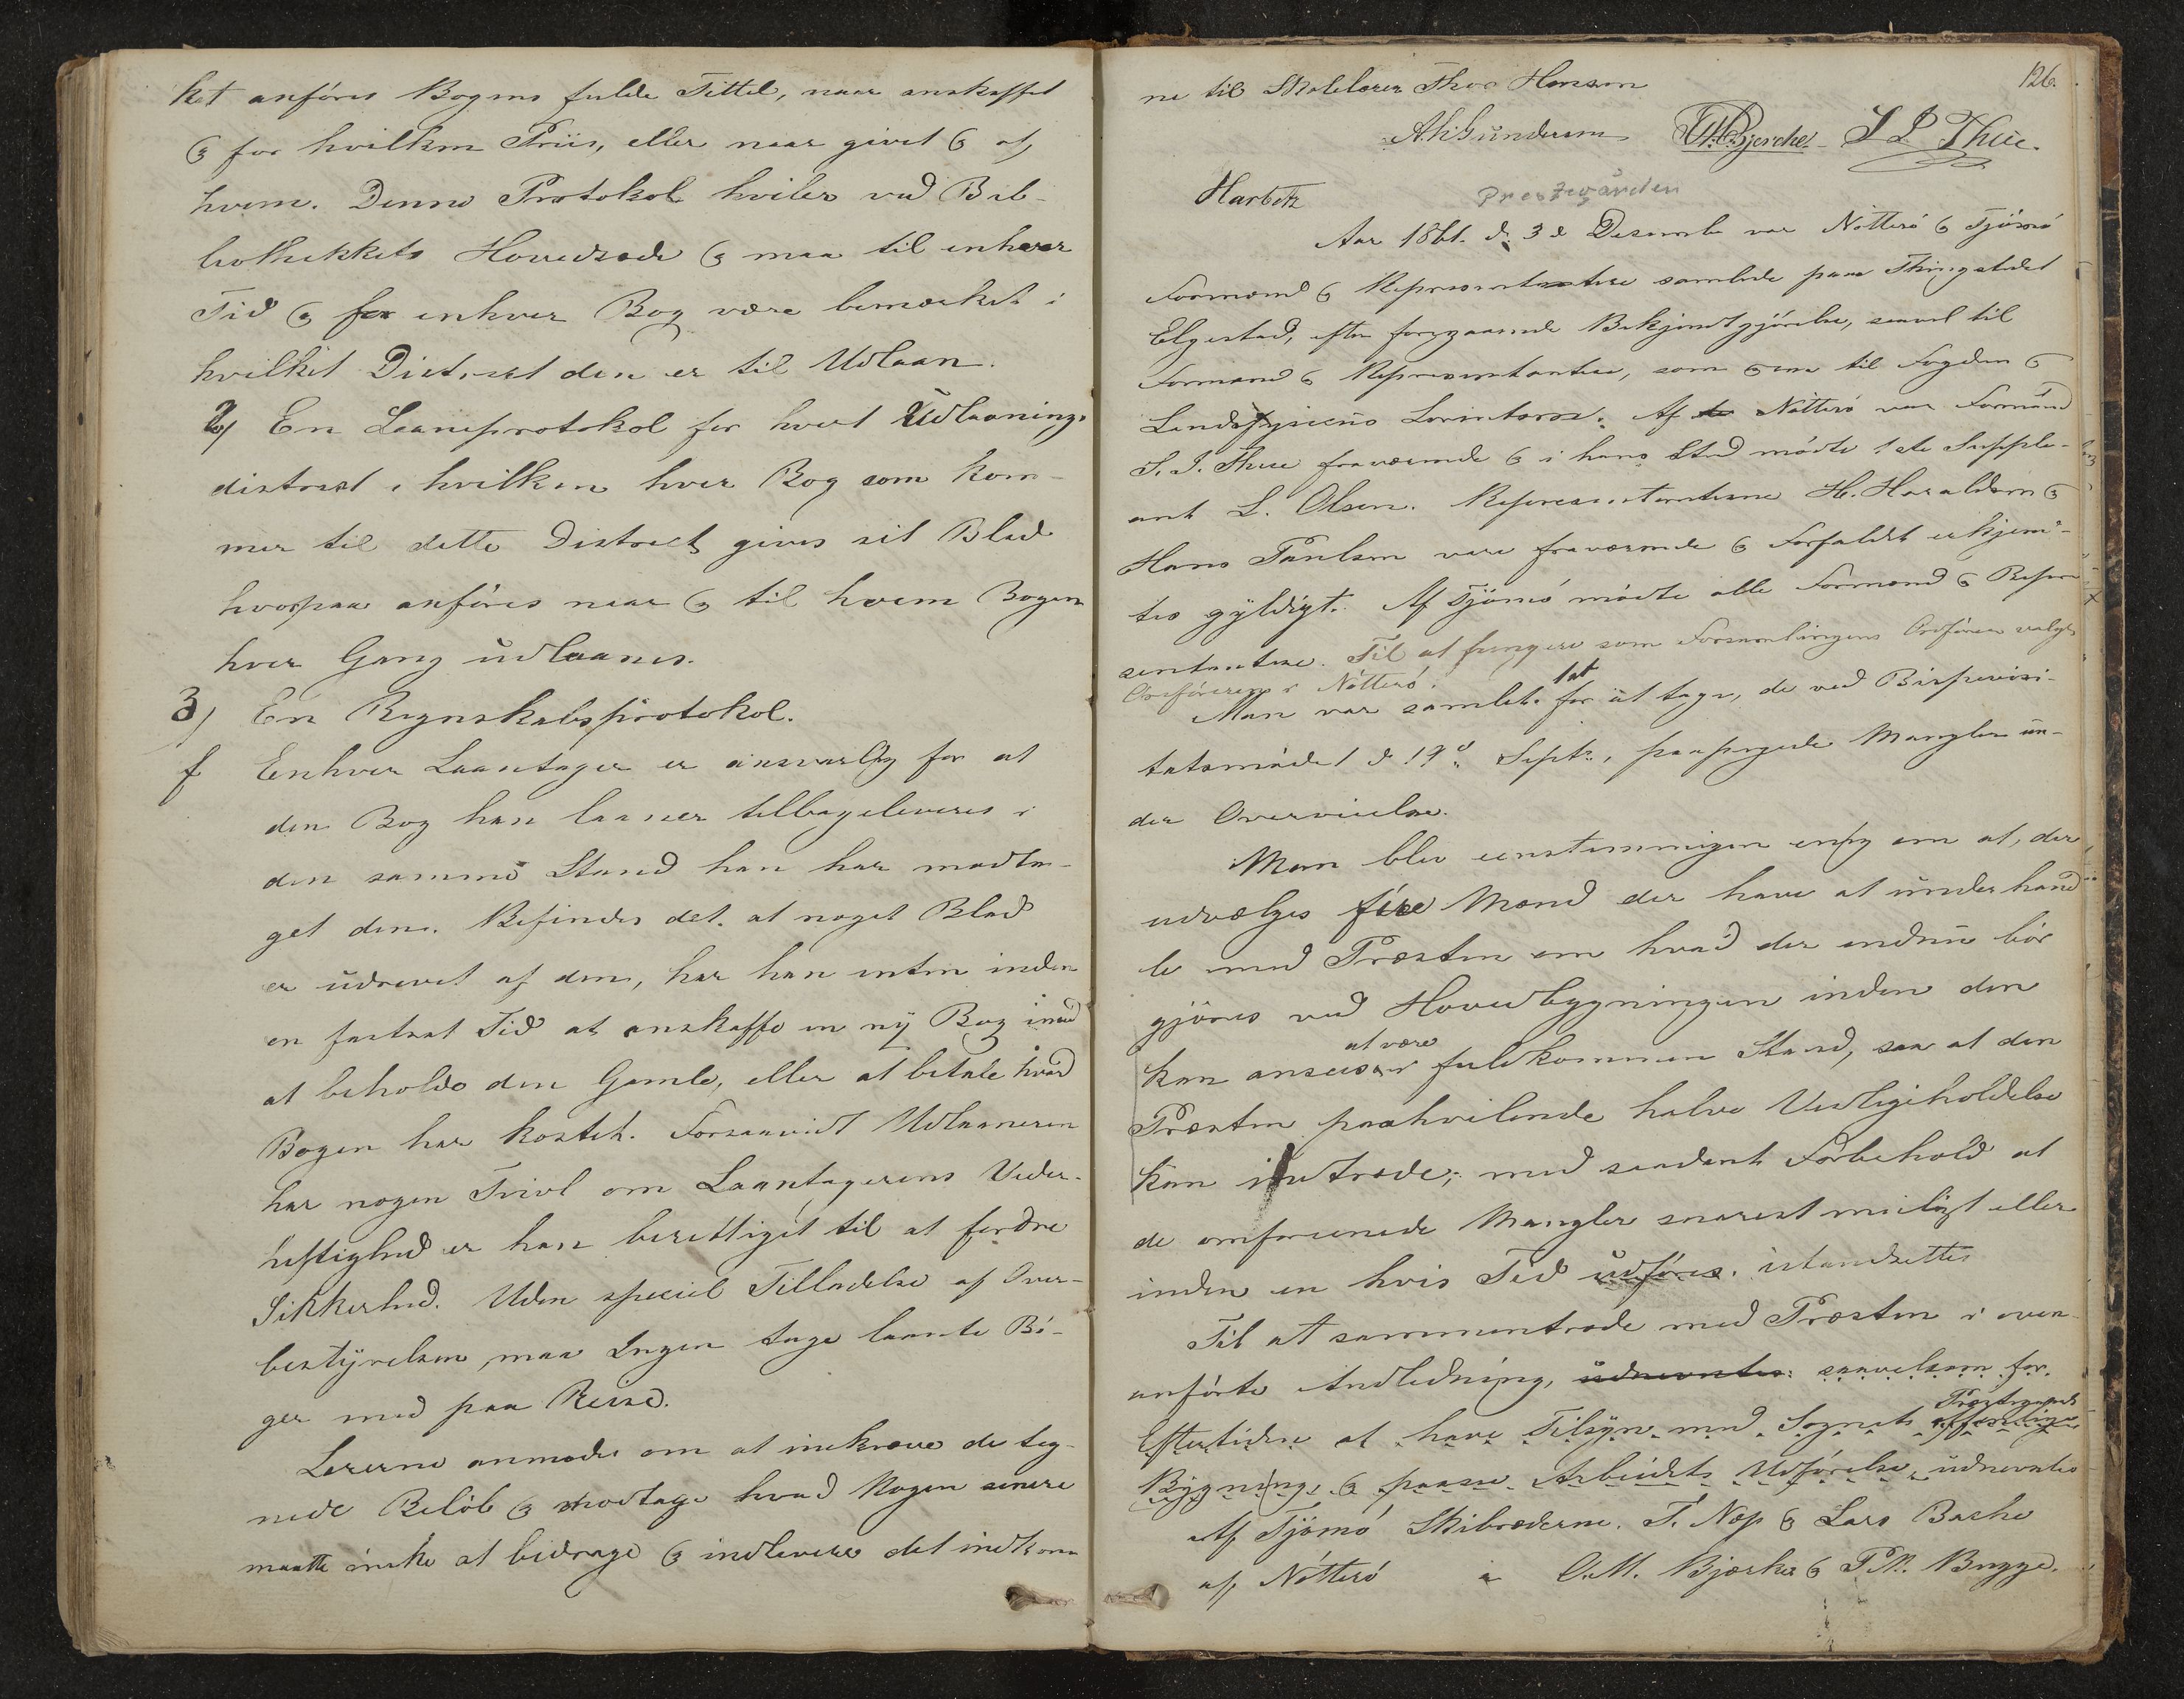 ket anføres Bogens fulde Tittel, naar anskaffet
og for hvilken Priis, eller naar givet og af
hvem. Denne Protokol hviler ved Bib-
liothekkets Hovedsæde og maa til enhver
Tid og for enhver Bog være bemærket i
hvilket District den er til Udlaan.
2) En Laaneprotokol for hvert Udlaanings
district i hvilken hver Bog som kom-
mer til dette District gives sit Blad
hvorpaa anføres naar og til hvem Bogen
hver Gang udlaanes.
3) En Regnskabsprotokol.
f Enhver Laantager er ansvarlig for at
den Bog han laaner tilbageleveres i
den samme Stand han har modta-
get den. Befindes det at noget Blad
er udrevet af den, har han enten inden
en fastsat Tid at anskaffe en ny Bog imod
at beholde den Gamle, eller at betale hvad
Bogen har kostet. Forsaavidt Udlaaneren
har nogen Tvivl om Laantagerens Veder-
heftighed er han berettiget til at fordre
Sikkerhed. Uden speciel Tilladelse af Over-
bestyrelsen, maa Ingen tage laante Bø-
ger med paa Reise.
Lererne anmodes om at inkræve de teg-
nede Beløb og modtage hvad Nogen senere
maatte ønske at bidrage og indlevere det indkom
126.
ne til Skolelærer Thor Hansen
A.H. Gundersen O.M. Bjerche S. J. Thue.
Prestegården
Aar 1861. d. 3d Desembr var Nøtterø og Tjømø
Formænd og Repræsentantere samlede paa Thingstedet
Elgestad, efter foregaaende Bekjendtgjørelse, saavel til
Formænd og Repræsentantere, som til Fogden og
Af Nøtterø var Formand
S. J. Thue fraværende og i hans Sted mødte 1ste Supple-
ant L. Olsen. Repræsentanterne H. Haraldsen og
Hans Paulsen vare fraværende og Forfaldet erkjend-
tes gyldigt. Af Tjømø mødte alle Formænd og Repræ
sentantere. Til at fungere som Forsamlingens Ordfører valgtes
Ordføreren i Nøtterø.
1st
Man var samlet for at tage, de ved Bispevisi-
tatsmødet d. 19d Septr., paapegede Mangler un-
der Overveielse.
Man blev eenstemmigen enig om at, der
udvælges fire Mænd der have at underhand
le med Præsten om hvad der endnu bør
gjøres ved Hovedbygningen inden den
at være
kan ansees i fuldkommen Stand, saa at den
Præsten paahvilende halve Vedligeholdelse
kan indtræde; med saadant Forbehold at
de omforenede Mangler snarest muligt eller
inden en hvis Tid udføres. istandsettes
Til at sammentræde med Præsten i oven
anførte Anledning, udnevntes: saavelsom for
Præstegaards
Eftertiden at have Tilsyn med Sognets offentlige
Bygninge og paasee Arbeidets Udførelse, udnevntes
Af Tjømø Skibrederne. T. Næs og Lars Bache
af Nøtterø a O.M. Bjerke og P.N. Bugge.